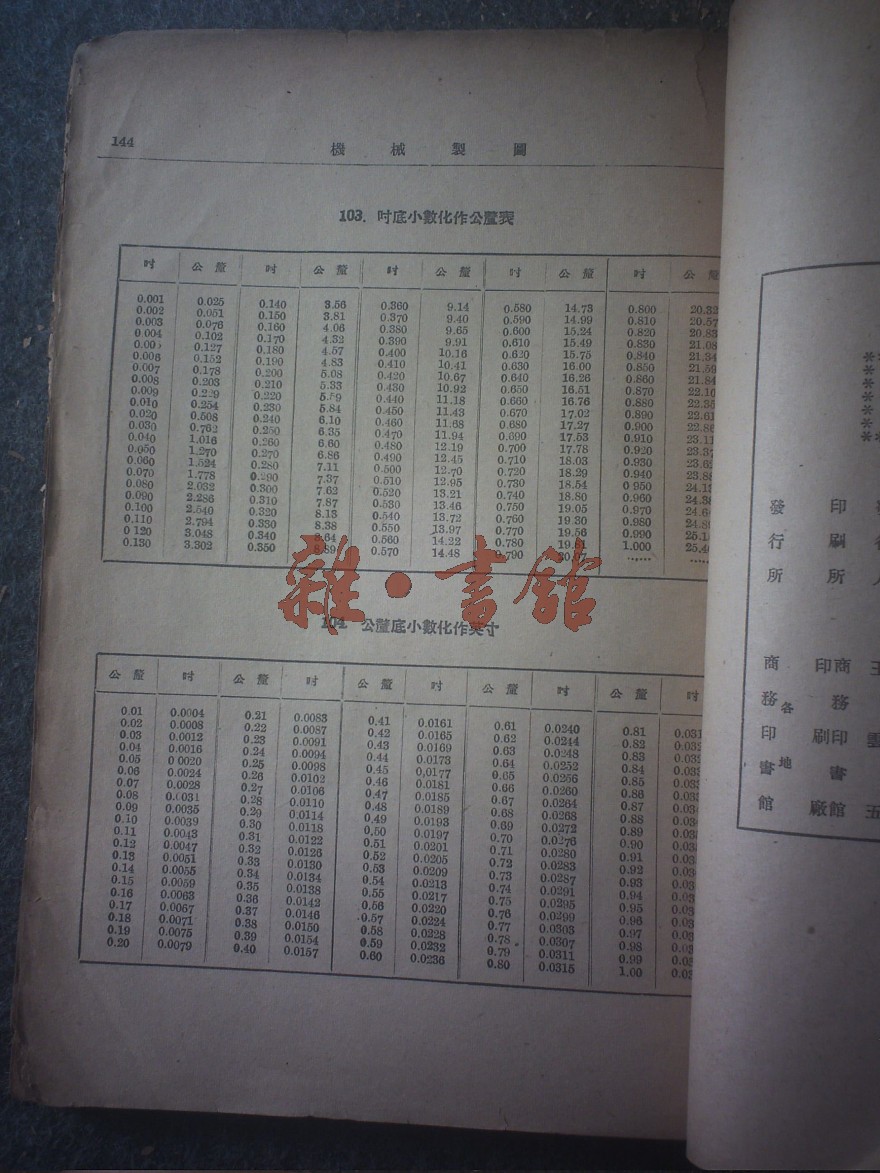 144
機械製圖
103. 吋底小數化作公釐表
吋 公釐 吋 公釐 吋 公釐 吋 公釐 吋 公釐
0.001 0.025 0.140 3.56 0.360 9.14 0.580 14.73 0.800 20.32
0.002 0.051 0.150 3.81 0.370 9.40 0.590 14.99 0.810 20.57
0.003 0.076 0.160 4.06 0.380 9.65 0.600 15.24 0.820 20.83
0.004 0.102 0.170 4.32 0.390 9.91 0.610 15.49 0.830 21.08
0.005 0.127 0.180 4.57 0.400 10.16 0.620 15.75 0.840 21.34
0.006 0.152 0.190 4.83 0.410 10.41 0.630 16.00 0.850 21.59
0.007 0.178 0.200 5.08 0.420 10.67 0.640 16.26 0.860 21.84
0.008 0.203 0.210 5.33 0.430 10.92 0.650 16.51 0.870 22.10
0.009 0.229 0.220 5.59 0.440 11.18 0.660 16.76 0.880 22.35
0.010 0.254 0.230 5.84 0.450 11.43 0.670 17.02 0.890 22.61
0.020 0.508 0.240 6.10 0.460 11.68 0.680 17.27 0.900 22.86
0.030 0.762 0.250 6.35 0.470 11.94 0.690 17.53 0.910 23.11
0.040 1.016 0.260 6.60 0.480 12.19 0.700 17.78 0.920 23.37
0.050 1.270 0.270 6.86 0.490 12.45 0.710 18.03 0.930 23.62
0.060 1.524 0.280 7.11 0.500 12.70 0.720 18.29 0.940 23.88
0.070 1.778 0.290 7.37 0.510 12.95 0.730 18.54 0.950 24.13
0.080 2.032 0.300 7.62 0.520 13.21 0.740 18.80 0.960 24.38
0.090 2.286 0.310 7.87 0.530 13.46 0.750 19.05 0.970 24.6
0.100 2.540 0.320 8.13 0.540 13.72 0.760 19.30 0.980 24.8
0.110 2.794 0.330 8.38 0.550 13.97 0.770 19.56 0.990 25.1
0 120 3.048 0.340 8.64 0.560 14.22 0.780 19.81 1.000 25.40
0.130 3.302 0.350 8.89 0.570 14.48 0.790 20.07 …… ……
雜·書館
104. 公釐底小數化作英寸
公釐 吋 公釐 吋 公釐 吋 公釐 吋 公釐 吋
0.01 0.0004 0.21 0.0083 0.41 0.0161 0.61 0.0240 0.81 0.031
0.02 0.0008 0.22 0.0087 0.42 0.0165 0.62 0.0244 0.82 0.032
0.03 0.0012 0.23 0.0091 0.43 0.0169 0.63 0.0248 0.83 0.032
0.04 0.0016 0.24 0.0094 0.44 0.0173 0.64 0.0252 0.84 0.033
0.05 0 0020 0.25 0.0098 0.45 0.0177 0.65 0.0256 0.85 0.033
0.06 0.0024 0.26 0.0102 0.46 0.0181 0.66 0.0260 0.86 0.033
0.07 0.0028 0.27 0.0106 0.47 0.0185 0.67 0.0264 0.87 0.03
0.08 0.0031 0.28 0.0110 0.48 0.0189 0.68 0.0268 0.88 0.03
0.09 0.0035 0.29 0.0114 0.49 0.0193 0.69 0.0272 0.89 0.03
0.10 0.0039 0.30 0.0118 0.50 0.0197 0.70 0.0276 0.90 0.03
0.11 0.0043 0.31 0.0122 0.51 0.0201 0.71 0.0280 0.91 0.03
0.12 0.0047 0.32 0.0126 0.52 0.0205 0.72 0.0283 0.92 0.03
0.13 0.0051 0.33 0.0130 0.53 0.0209 0.73 0.0287 0.93 0.03
0.14 0.0055 0.34 0.0134 0.54 0.0213 0.74 0.0291 0.94 0.03
0.15 0.0059 0.35 0.0138 0.55 0.0217 0.75 0.0295 0.95 0.03
0.16 0.0063 0.36 0.0142 0.56 0.0220 0.76 0.0299 0.96 0.03
0.17 0.0067 0.37 0.0146 0.57 0.0224 0.77 0.0303 0.97 0.03
0.18 0.0071 0.38 0.0150 0.58 0.0228 0.78 0.0307 0.98 0.03
0.19 0.0075 0.39 0.0154 0.59 0.0232 0.79 0.0311 0.99 0.03
0.20 0.0079 0.40 0.0157 0.60 0.0236 0.80 0.0315 1.00 0.03
王雲五
印刷所 商務印書館印刷廠
發行所 商務印書館各地